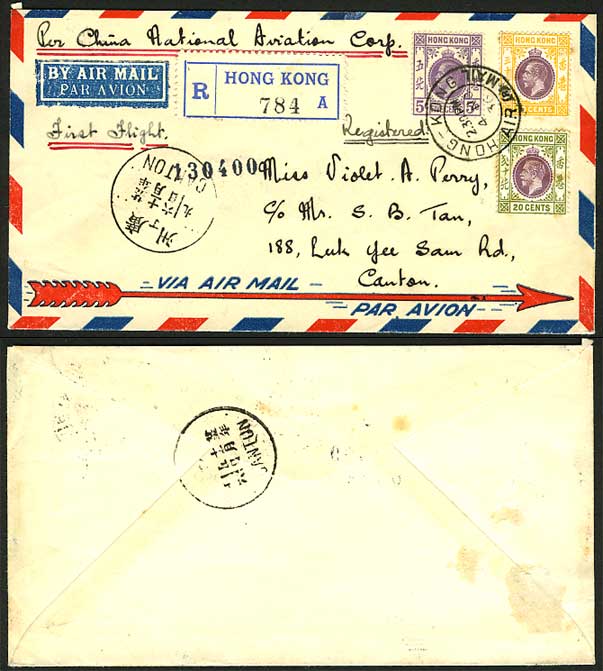 Per China National Aviation Corp.
BY AIR MAIL
PAR AVION
R
HONG KONG
784 A
HONG KONG
5
HONG KONG
CENTS
HONG KONG
20 CENTS
First Flight.
Registered.
AIR MAIL
HONG-KONG
2.30 PM
CANTON
廣州
130400
Miss Violet A. Perry,
c/o Mr. S. B. Tan,
188, Luk Yee Sam Rd.,
Canton.
VIA AIR MAIL
PAR AVION
CANTON